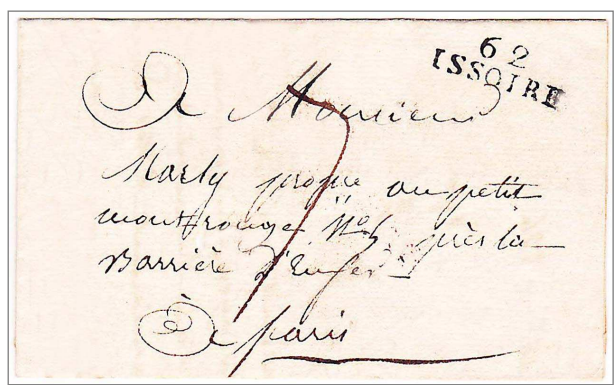 62
ISSOIRE
A Monsieur
7
Marly au petit
montrouge N° 5 près la
Barrière d'Enfer
à paris